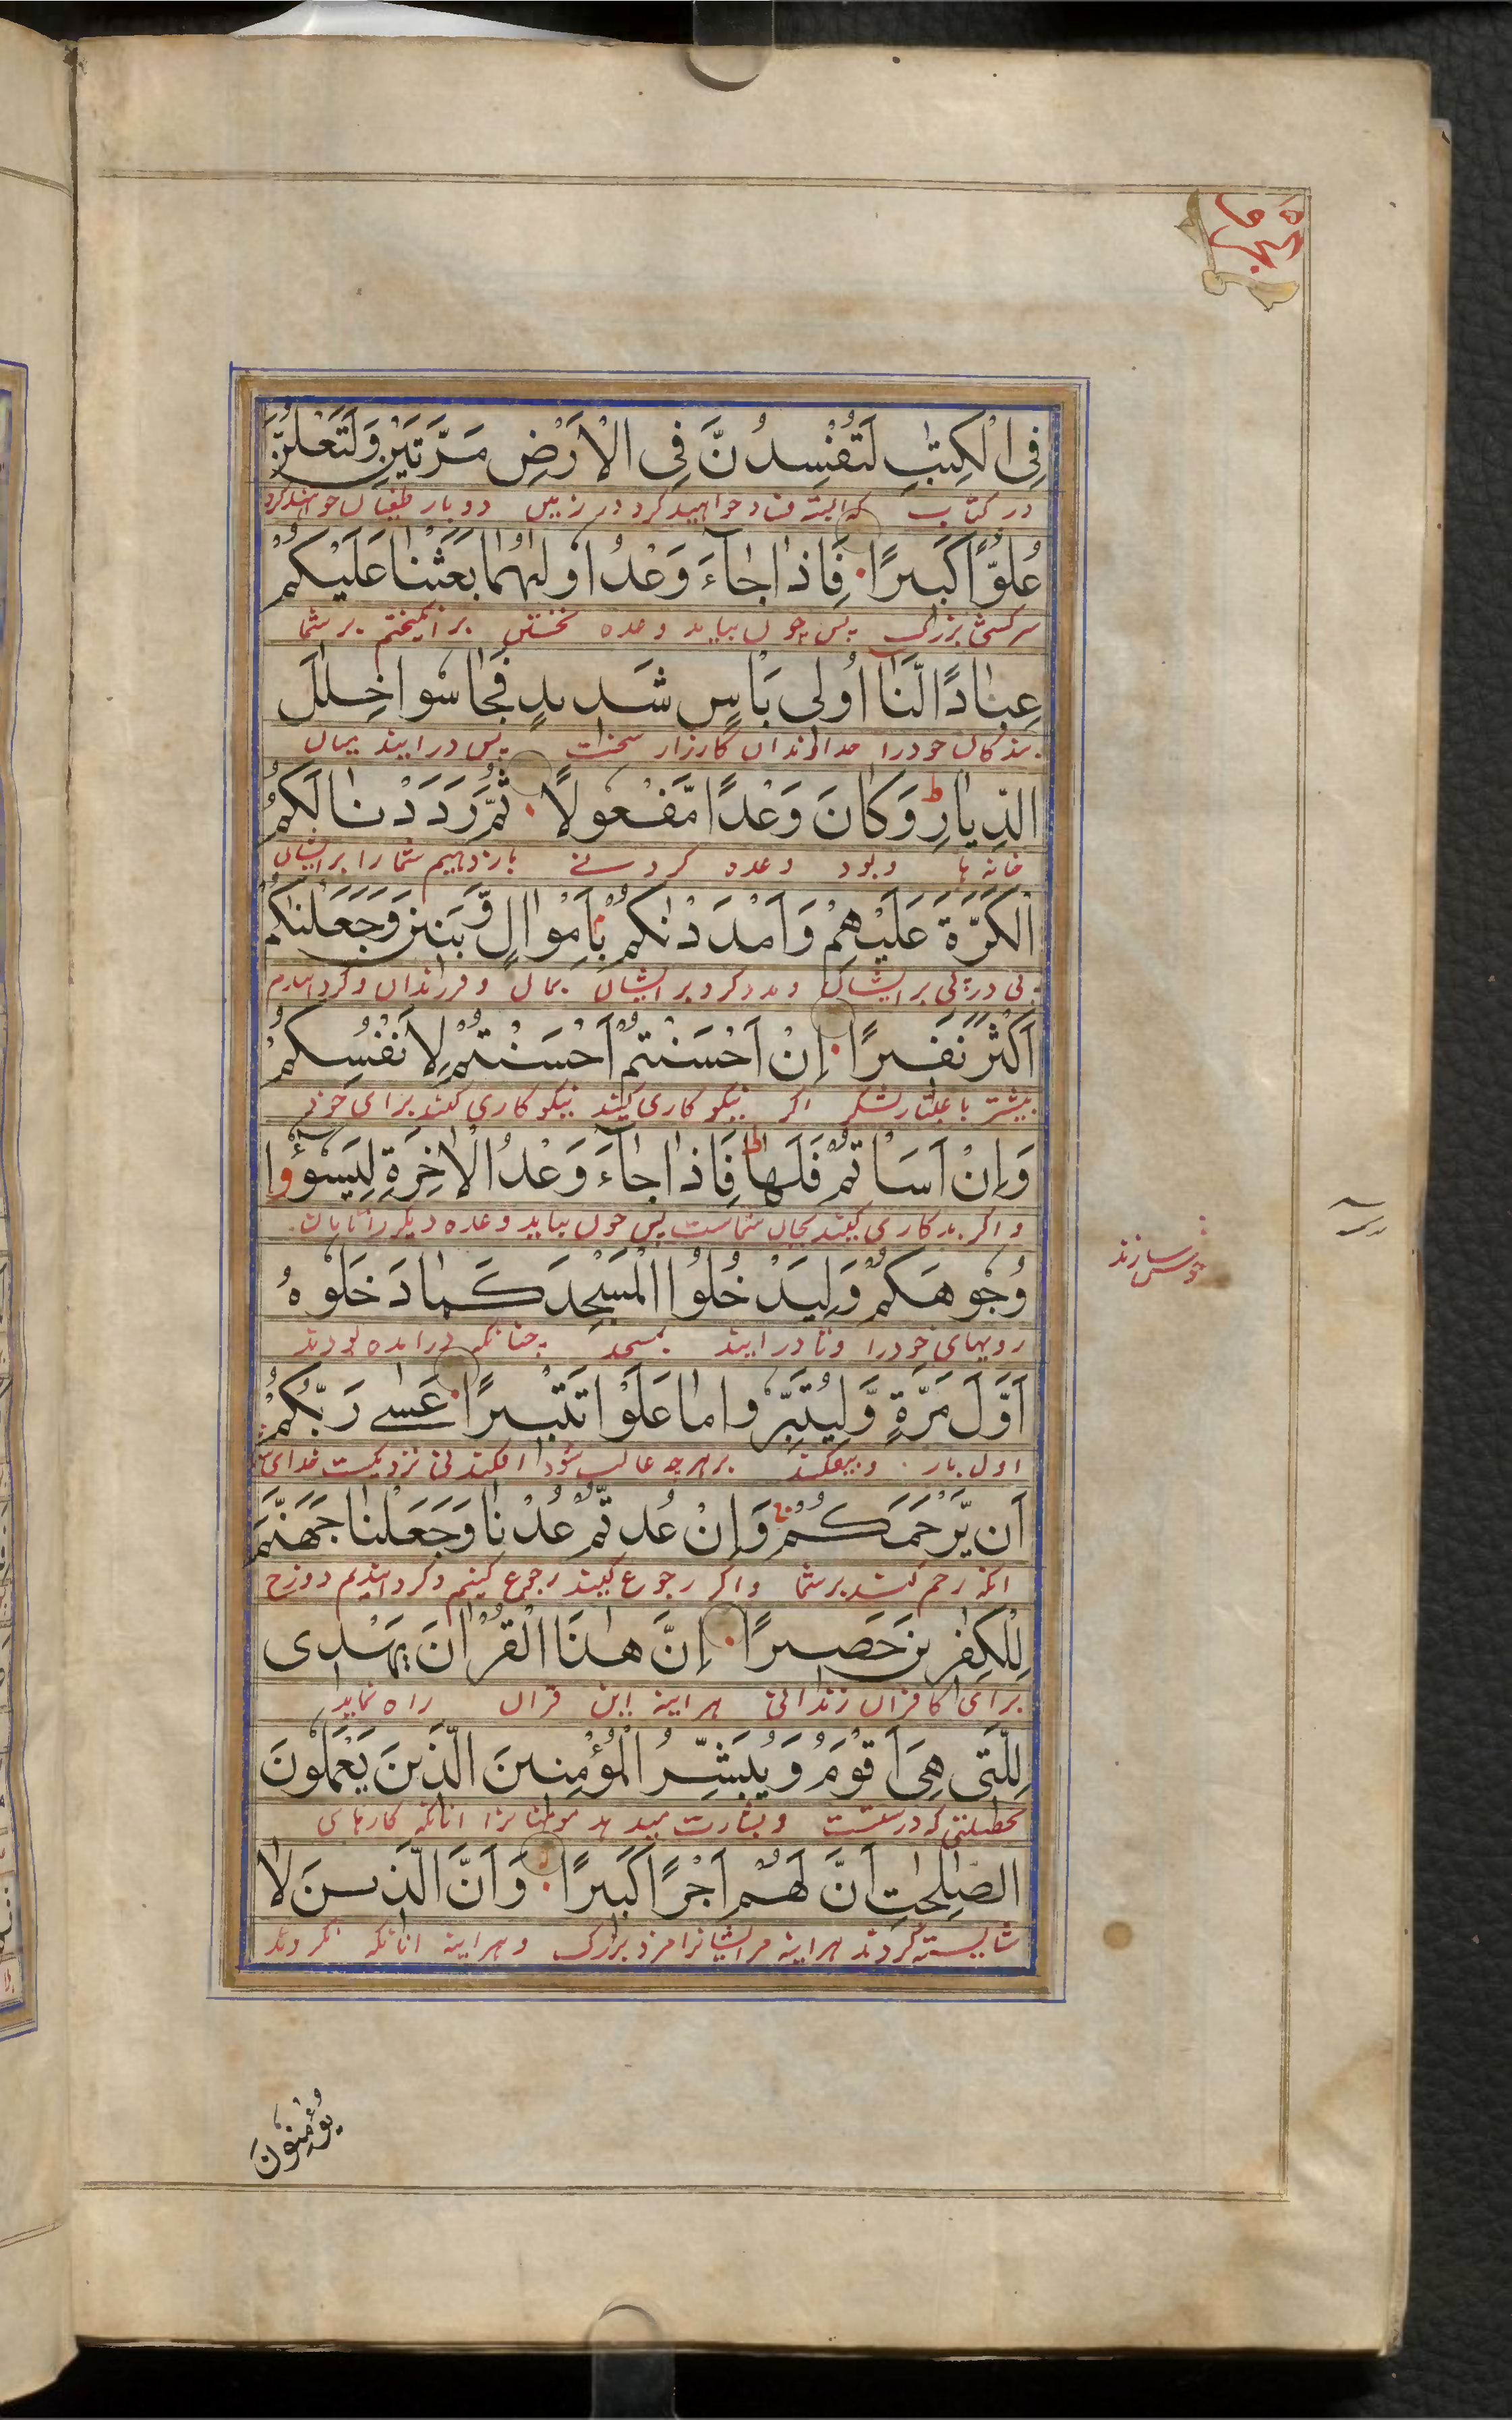 الجزء ١٥
فِى الْكِتٰبِ لَتُفْسِدُنَّ فِى الْاَرْضِ مَرَّتَيْنِ وَلَتَعْلُنَّ
در كتاب كه البته فساد خواهيد كرد در زمين دوبار طغيان خواهند كرد
عُلُوًّا كَبِيرًا فَاِذَا جَآءَ وَعْدُ اُولٰىهُمَا بَعَثْنَا عَلَيْكُمْ
سركشى بزرگ پس چون بيايد وعده نخستين برانگيختم بر شما
عِبَادًا لَّنَآ اُولِى بَاْسٍ شَدِيدٍ فَجَاسُوا خِلٰلَ
بندگان خود را خداوندان كارزار سخت پس درايند ميان
الدِّيَارِ ط وَكَانَ وَعْدًا مَّفْعُولًا ثُمَّ رَدَدْنَا لَكُمُ
خانه ها وبود وعده كردنے باز دهيم شما را برايشان
الْكَرَّةَ عَلَيْهِمْ وَاَمْدَدْنٰكُمْ بِاَمْوَالٍ وَّبَنِينَ وَجَعَلْنٰكُمْ
پى در پى بر ايشان ومدد كرد بر ايشان بمال وفرزندان وگردانيدم
اَكْثَرَ نَفِيرًا اِنْ اَحْسَنْتُمْ اَحْسَنْتُمْ لِاَنْفُسِكُمْ
بيشتر باعتبار لشكر اگر نيكوكارى كنيد نيكوكارى كنيد براى خود
وَاِنْ اَسَاْتُمْ فَلَهَا ط فَاِذَا جَآءَ وَعْدُ الْاٰخِرَةِ لِيَسُوْٓءُوا
واگر بدكارى كنيد بجان شماست پس چون بيايد وعده ديگر را تا
وُجُوهَكُمْ وَلِيَدْخُلُوا الْمَسْجِدَ كَمَا دَخَلُوهُ
رويهاى خود را وتا درايند بمسجد چنانكه درامده بودند
اَوَّلَ مَرَّةٍ وَّلِيُتَبِّرُوا مَا عَلَوْا تَتْبِيرًا عَسٰى رَبُّكُمْ
اول بار وبيفكند بر هرچه غالب شود افكندنى نزديكست خداى
اَن يَّرْحَمَكُمْ وَاِنْ عُدتُّمْ عُدْنَا وَجَعَلْنَا جَهَنَّمَ
انكه رحم كند بر شما واگر رجوع كنيد رجوع كنيم وگردانيديم دوزخ
لِلْكٰفِرِينَ حَصِيرًا اِنَّ هٰذَا الْقُرْاٰنَ يَهْدِى
براى كافران زندانى هراينه اين قران راه نمايد
لِلَّتِى هِىَ اَقْوَمُ وَيُبَشِّرُ الْمُؤْمِنِينَ الَّذِينَ يَعْمَلُونَ
بخصلتى كه درستست وبشارت ميدهد مومنانرا انانكه كارهاى
الصّٰلِحٰتِ اَنَّ لَهُمْ اَجْرًا كَبِيرًا وَاَنَّ الَّذِينَ لَا
شايسته كردند هراينه مر ايشانرا مزد بزرگ وهراينه انانكه نگروند
سازند
يُؤْمِنُونَ